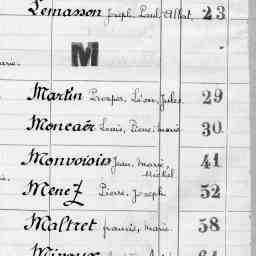 Lemasson Joseph, Paul Albert, 23
M
Martin Prosper, Léon, Jules. 29
Moncaër Louis, Pierre, marie 30
Monvoisin Jean, marie, Michel 41
Menez Pierre, Joseph 52
Maltret francis, marie. 58